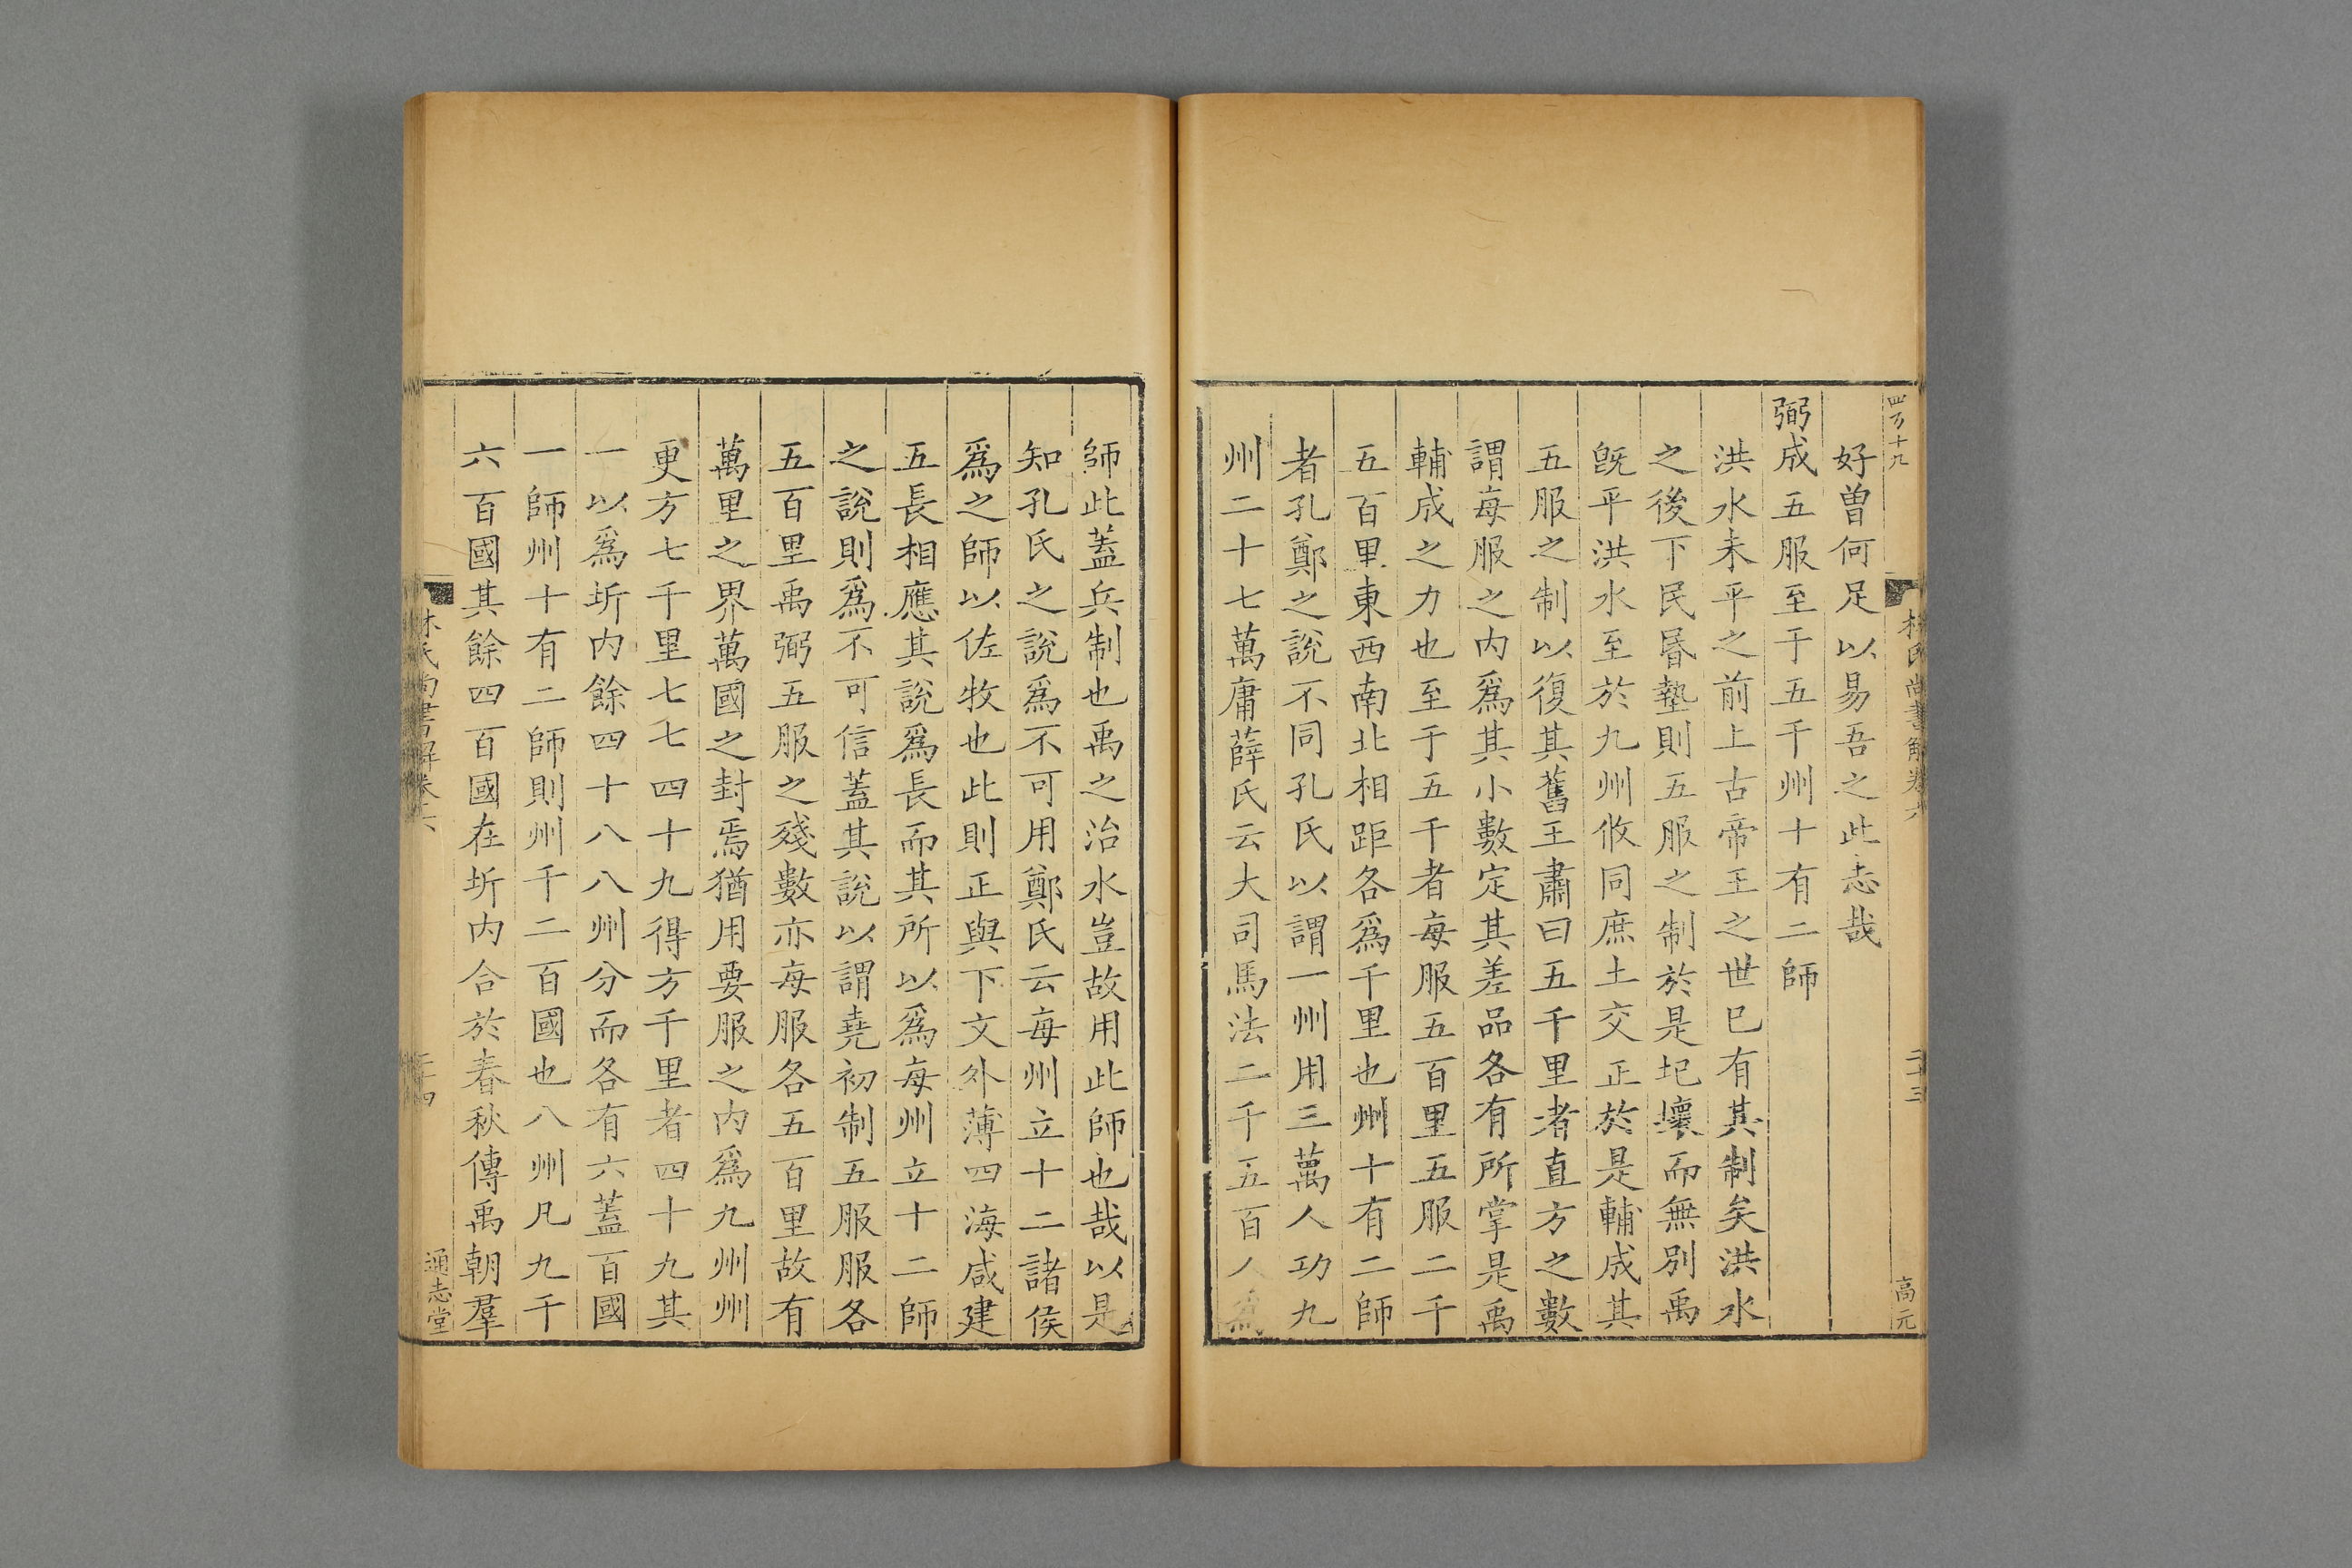 四百十九
林氏尚書解卷六
二十三
高元
好曾何足以易吾之此志哉
弼成五服至于五千州十有二師
洪水未平之前上古帝王之世已有其制矣洪水
之後下民昬墊則五服之制於是圮壞而無別禹
旣平洪水至於九州攸同庶土交正於是輔成其
五服之制以復其舊王肅曰五千里者直方之數
謂每服之内爲其小數定其差品各有所掌是禹
輔成之力也至于五千者每服五百里五服二千
五百里東西南北相距各爲千里也州十有二師
者孔鄭之說不同孔氏以謂一州用三萬人功九
州二十七萬庸薛氏云大司馬法二千五百人爲
師此蓋兵制也禹之治水豈故用此師也哉以是
知孔氏之說爲不可用鄭氏云每州立十二諸侯
爲之師以佐牧也此則正與下文外薄四海咸建
五長相應其說爲長而其所以爲每州立十二師
之說則爲不可信蓋其說以謂堯初制五服服各
五百里禹弼五服之殘數亦每服各五百里故有
萬里之界萬國之封焉猶用要服之内爲九州州
更方七千里七七四十九得方千里者四十九其
一以爲圻内餘四十八八州分而各有六蓋百國
一師州十有二師則州千二百國也八州凡九千
六百國其餘四百國在圻内合於春秋傳禹朝羣
林氏尚書解卷六
二十四
通志堂